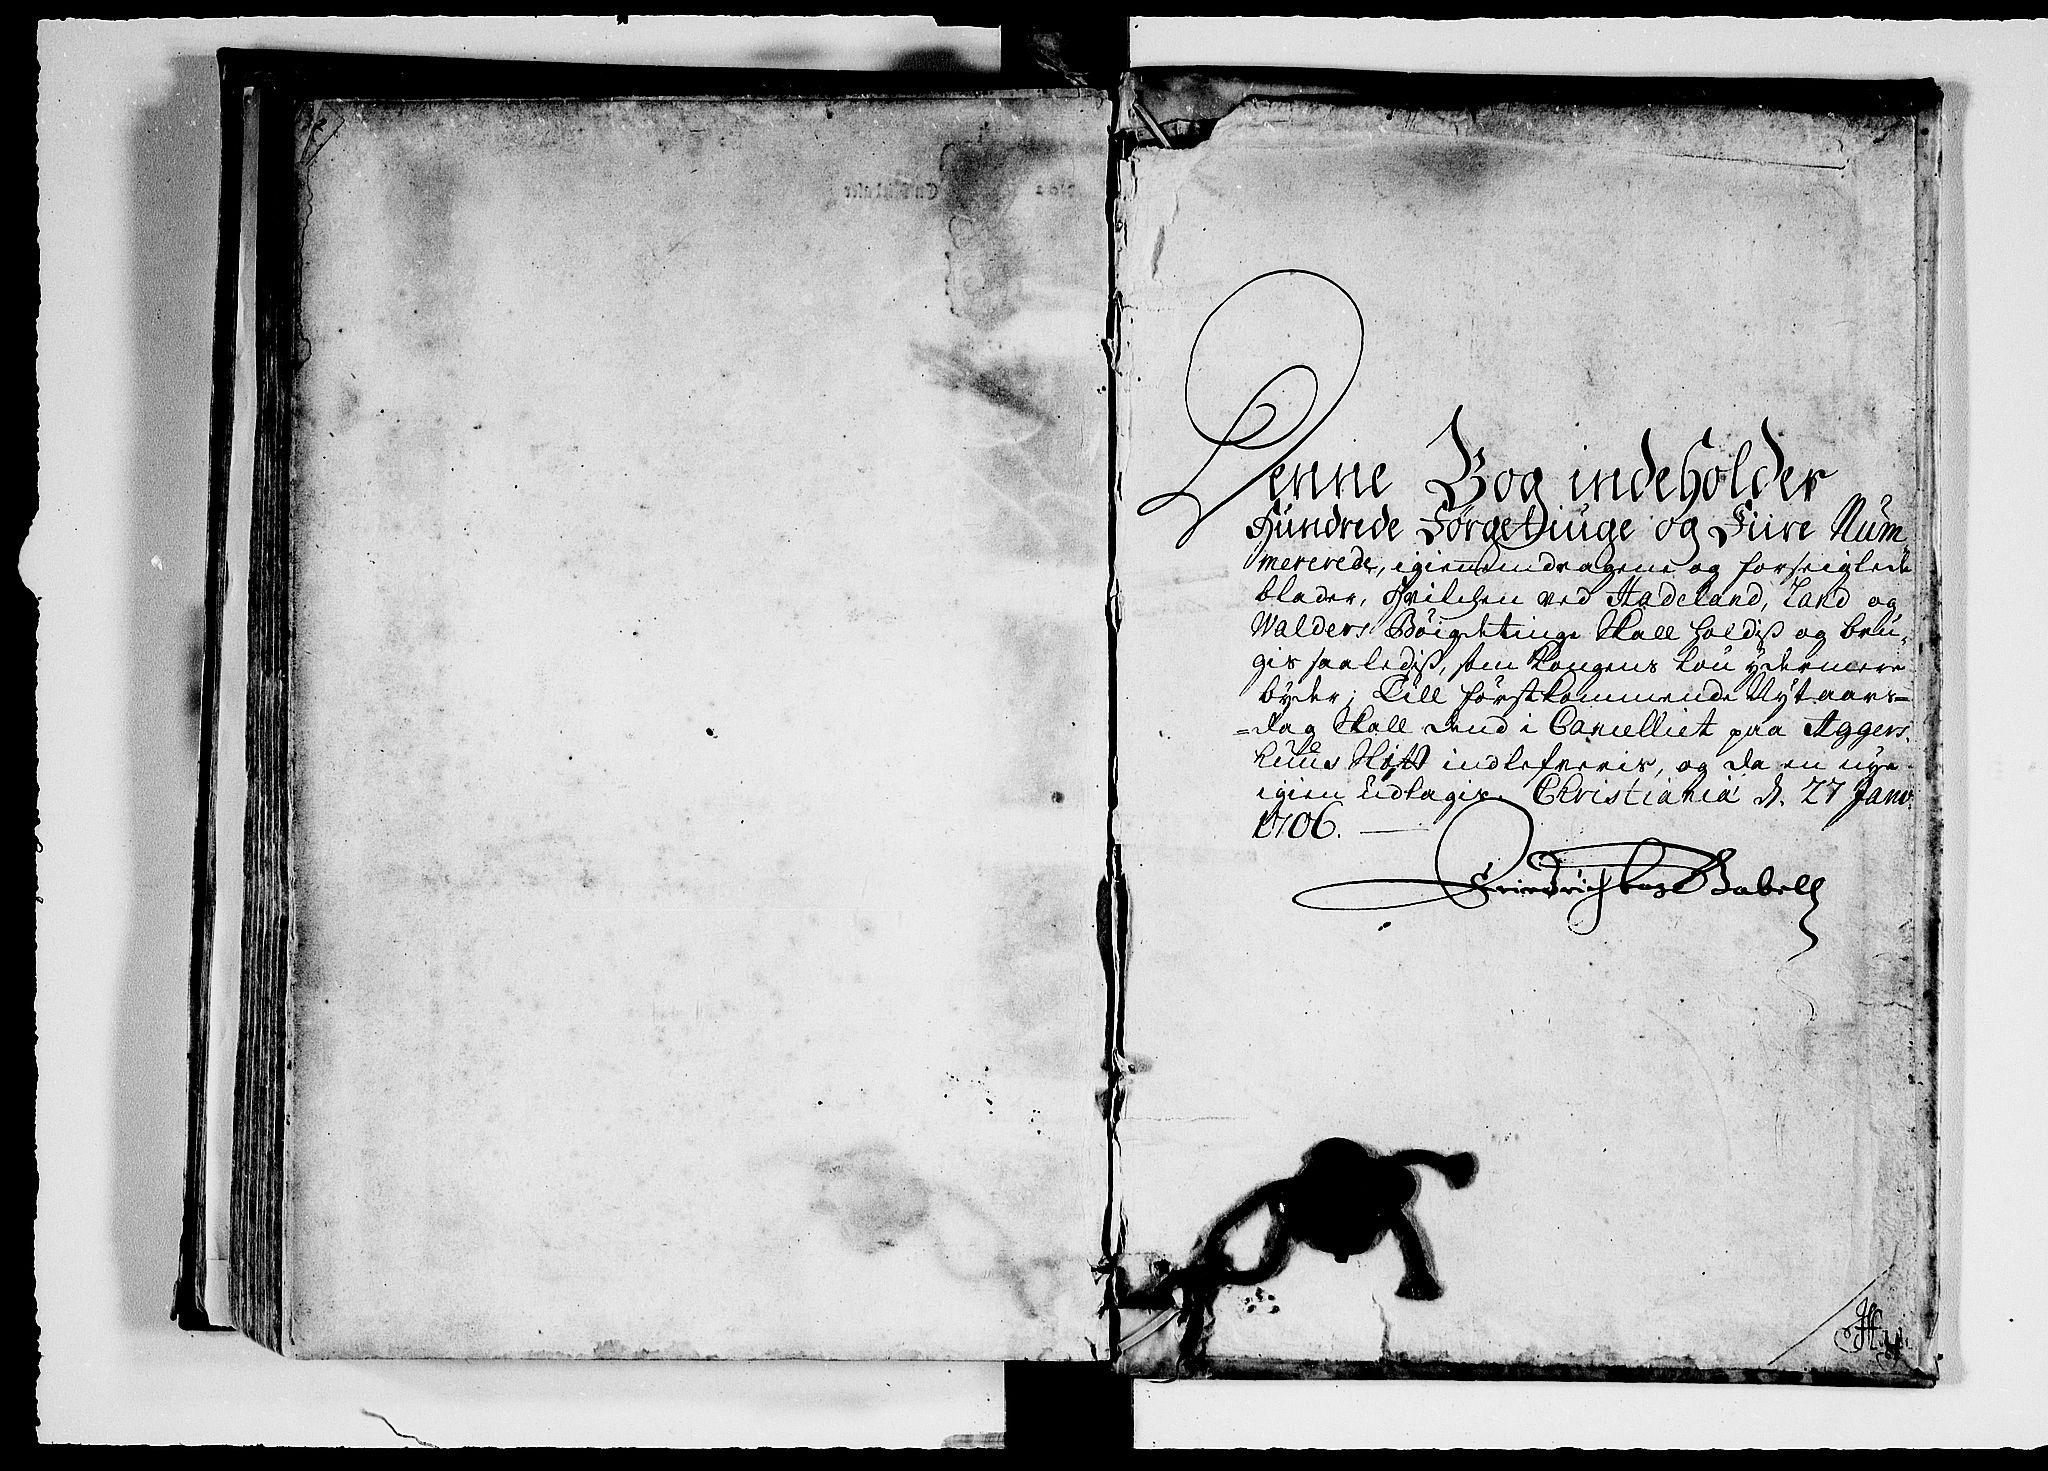 Denne Bog indeholder
Hundrede Førgetiuge og Fiire Num-
mererede, igiennemdragene og forseiglede
blader, Hvilchen ved Hadeland, Land og
Walders Böigdetinge Skall holdis og bru-
gis saaledis, som Kongens Lou ydermere
byder; Till förstkommende Nytaars-
=dag Skall dend i Cancelliet paa Aggers-
huus Slott indlefveris, og da en nye
igien Udtagis. Christiania d. 27 Janv.
1706.
Friedrich Gabell